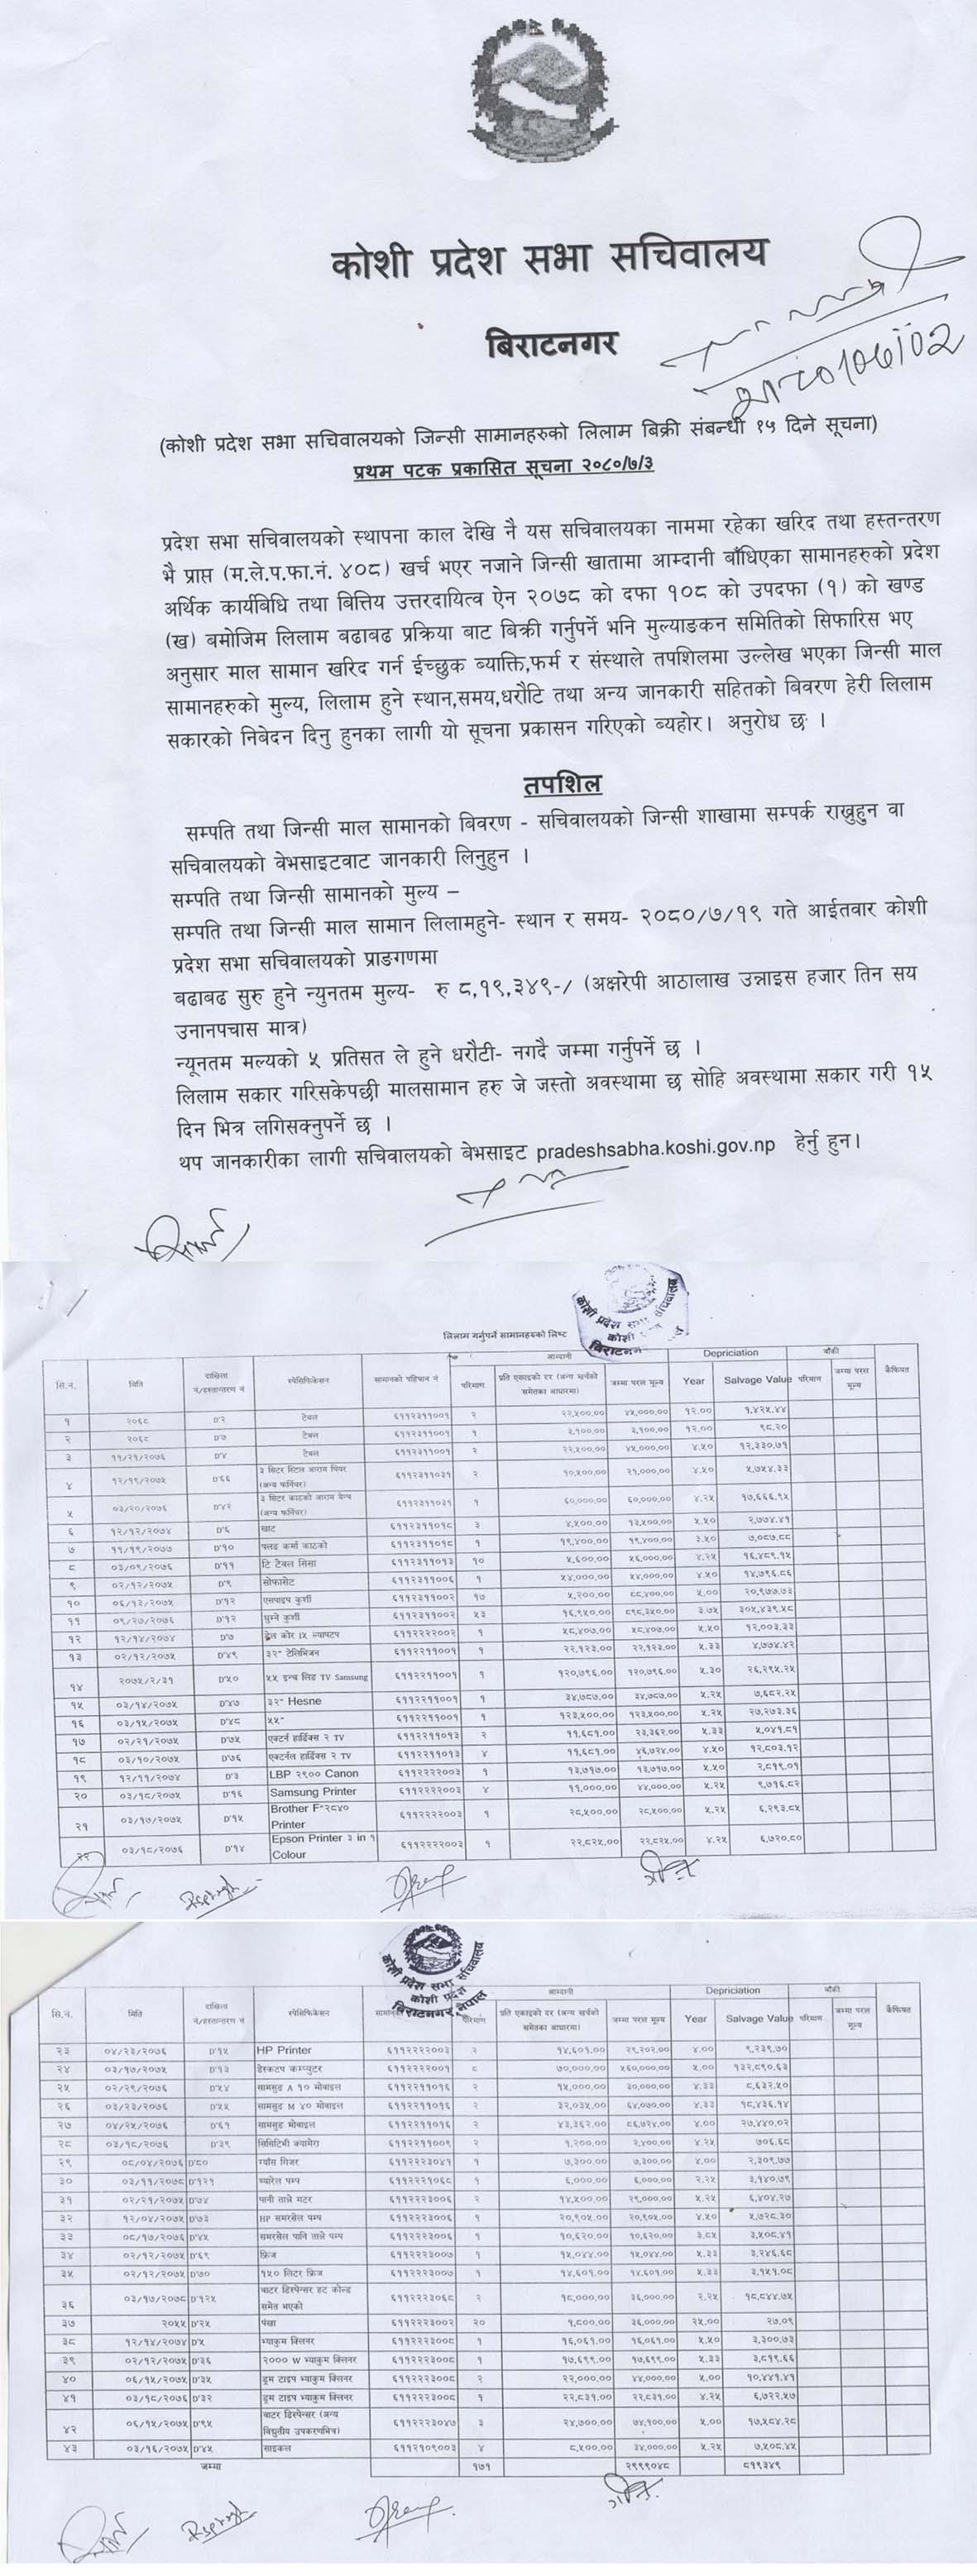 कोशी प्रदेश सभा सचिवालय
बिराटनगर
२०८०।०७।०२
(कोशी प्रदेश सभा सचिवालयको जिन्सी सामानहरुको लिलाम बिक्री संबन्धी १५ दिने सूचना)
प्रथम पटक प्रकासित सूचना २०८०/७/३
प्रदेश सभा सचिवालयको स्थापना काल देखि नै यस सचिवालयका नाममा रहेका खरिद तथा हस्तन्तरण
भै प्राप्त (म.ले.प.फा.नं. ४०८) खर्च भएर नजाने जिन्सी खातामा आम्दानी बाँधिएका सामानहरुको प्रदेश
अर्थिक कार्यबिधि तथा बित्तिय उत्तरदायित्व ऐन २०७८ को दफा १०८ को उपदफा (१) को खण्ड
(ख) बमोजिम लिलाम बढाबढ प्रक्रिया बाट बिक्री गर्नुपर्ने भनि मुल्याङकन समितिको सिफारिस भए
अनुसार माल सामान खरिद गर्न ईच्छुक ब्याक्ति,फर्म र संस्थाले तपशिलमा उल्लेख भएका जिन्सी माल
सामानहरुको मुल्य, लिलाम हुने स्थान,समय,धरौटि तथा अन्य जानकारी सहितको बिवरण हेरी लिलाम
सकारको निबेदन दिनु हुनका लागी यो सूचना प्रकासन गरिएको ब्यहोर। अनुरोध छ ।
तपशिल
सम्पति तथा जिन्सी माल सामानको बिवरण - सचिवालयको जिन्सी शाखामा सम्पर्क राख्नुहुन वा
सचिवालयको वेभसाइटवाट जानकारी लिनुहुन ।
सम्पति तथा जिन्सी सामानको मुल्य –
सम्पति तथा जिन्सी माल सामान लिलामहुने- स्थान र समय- २०८०/७/१९ गते आईतवार कोशी
प्रदेश सभा सचिवालयको प्राङगणमा
बढाबढ सुरु हुने न्युनतम मुल्य- रु ८,१९,३४९-/ (अक्षरेपी आठालाख उन्नाइस हजार तिन सय
उनानपचास मात्र)
न्यूनतम मल्यको ५ प्रतिसत ले हुने धरौटी- नगदै जम्मा गर्नुपर्ने छ ।
लिलाम सकार गरिसकेपछी मालसामान हरु जे जस्तो अवस्थामा छ सोहि अवस्थामा सकार गरी १५
दिन भित्र लगिसक्नुपर्ने छ ।
थप जानकारीका लागी सचिवालयको बेभसाइट pradeshsabha.koshi.gov.np हेर्नु हुन।
कोशी प्रदेश सभा सचिवालय
कोशी
बिराटनगर
लिलाम गर्नुपर्ने सामानहरुको लिष्ट
आम्दानी Depriciation बाँकी
सि.न. मिति दाखिला नं/हस्तान्तरण न स्पेसिफिकेसन सामानको पहिचान नं परिमाण प्रति एकाइको दर (अन्य खर्चको समेतका आधारमा) जम्मा परल मूल्य Year Salvage Value परिमाण जम्मा परल मूल्य कैफियत
१ २०६८ D'२ टेबल ६११२३११००१ २ २२,५००.०० ४५,०००.०० १२.०० १,४२५.४४
२ २०६८ D'७ टेबल ६११२३११००१ १ ३,१००.०० ३,१००.०० १२.०० ९८.२०
३ ११/२१/२०७६ D'४ टेबल ६११२३११००१ २ २२,५००.०० ४५,०००.०० ४.५० १२,३३०.७१
४ १२/१९/२०७५ D'६६ ३ सिटर स्टिल आराम चियर (अन्य फर्निचर) ६११२३११०३१ २ १०,५००.०० २१,०००.०० ४.५० ५,७५४.३३
५ ०३/२०/२०७६ D'४२ ३ सिटर काठको आराम बेन्च (अन्य फर्निचर) ६११२३११०३१ १ ६०,०००.०० ६०,०००.०० ४.२५ १७,६६६.९५
६ १२/१२/२०७४ D'६ खाट ६११२३११०१८ ३ ४,५००.०० १३,५००.०० ५.५० २,७७४.४१
७ ११/१९/२०७७ D'१० पलङ कर्मा काठको ६११२३११०१८ १ १९,४००.०० १९,४००.०० ३.५० ७,०८७.८८
८ ०३/०९/२०७६ D'११ टि टेबल सिसा ६११२३११०१३ १० ५,६००.०० ५६,०००.०० ४.२५ १६,४८९.१५
९ ०२/१२/२०७५ D'९ सोफासेट ६११२३११००६ १ ५४,०००.०० ५४,०००.०० ४.५० १४,७९६.८६
१० ०६/१३/२०७५ D'१२ एसपाइप कुर्शी ६११२३११००२ १७ ५,२००.०० ८८,४००.०० ५.०० २०,९७७.७३
११ ०९/२७/२०७६ D'१२ घुम्ने कुर्शी ६११२३११००२ ५३ १६,९५०.०० ८९८,३५०.०० ३.७५ ३०५,४३९.५८
१२ १२/१४/२०७४ D'७ डेल कोर I५ ल्यापटप ६११२२२२००२ १ ५८,४०७.०० ५८,४०७.०० ५.५० १२,००३.३३
१३ ०२/१२/२०७५ D'४९ ३२" टेलिभिजन ६११२२११००१ १ २२,१२३.०० २२,१२३.०० ५.३३ ४,७७४.४२
१४ २०७५/२/३१ D'५० ५५ इन्च लिड TV Samsung ६११२२११००१ १ १२०,७९६.०० १२०,७९६.०० ५.३० २६,२९५.२५
१५ ०३/१४/२०७५ D'४७ ३२" Hesne ६११२२११००१ १ ३४,७८७.०० ३४,७८७.०० ५.२५ ७,६८२.२५
१६ ०३/१५/२०७५ D'४८ ५५" ६११२२११००१ १ १२३,५००.०० १२३,५००.०० ५.२५ २७,२७३.३६
१७ ०२/२१/२०७५ D'७५ एक्टर्न हार्डिक्स २ TV ६११२२११०१३ २ ११,६८१.०० २३,३६२.०० ५.३३ ५,०४१.८१
१८ ०३/१०/२०७५ D'७६ एक्टर्नल हार्डिक्स २ TV ६११२२११०१३ ४ ११,६८१.०० ४६,७२४.०० ४.५० १२,८०३.१२
१९ १२/११/२०७४ D'३ LBP २९०० Canon ६११२२२२००३ १ १३,७१७.०० १३,७१७.०० ५.५० २,८१९.०१
२० ०३/१८/२०७५ D'१६ Samsung Printer ६११२२२२००३ ४ ११,०००.०० ४४,०००.०० ५.२५ ९,७१६.८२
२१ ०३/१७/२०७५ D'१५ Brother F'२८४० Printer ६११२२२२००३ १ २८,५००.०० २८,५००.०० ५.२५ ६,२९३.८५
२२ ०३/१८/२०७६ D'१४ Epson Printer ३ in १ Colour ६११२२२२००३ १ २२,८२५.०० २२,८२५.०० ४.२५ ६,७२०.८०
कोशी प्रदेश सभा सचिवालय
कोशी प्रदेश
बिराटनगर, नेपाल
आम्दानी Depriciation बाँकी
सि.न. मिति दाखिला नं/हस्तान्तरण न स्पेसिफिकेसन परिमाण प्रति एकाइको दर (अन्य खर्चको समेतका आधारमा) जम्मा परल मूल्य Year Salvage Value परिमाण जम्मा परल मूल्य कैफियत
२३ ०४/२३/२०७६ D'१५ HP Printer ६११२२२२००३ २ १४,६०१.०० २९,२०२.०० ४.०० ९,२३९.७०
२४ ०३/१७/२०७५ D'१३ डेस्कटप कम्प्युटर ६११२२२२००१ ८ ७०,०००.०० ५६०,०००.०० ५.०० १३२,८९०.६३
२५ ०२/२९/२०७६ D'५४ सामसुङ A १० मोबाइल ६११२२११०१६ २ १५,०००.०० ३०,०००.०० ४.३३ ८,६३२.५०
२६ ०३/२३/२०७६ D'५५ सामसुङ M ४० मोबाइल ६११२२११०१६ २ ३२,०३५.०० ६४,०७०.०० ४.३३ १८,४३६.१४
२७ ०४/२५/२०७६ D'६१ सामसुङ मोबाइल ६११२२११०१६ २ ४३,३६२.०० ८६,७२४.०० ४.०० २७,४४०.०२
२८ ०३/१८/२०७६ D'३९ सिसिटिभी क्यामेरा ६११२२११००९ २ १,२००.०० २,४००.०० ४.२५ ७०६.६८
२९ ०८/०४/२०७६ D'८० ग्याँस गिजर ६११२२२३०४१ १ ७,३००.०० ७,३००.०० ४.०० २,३०९.७७
३० ०३/११/२०७८ D'१२१ ब्यारेल पम्प ६११२२२१०६८ १ ६,०००.०० ६,०००.०० २.२५ ३,१४०.७९
३१ ०२/२१/२०७५ D'७४ पानी तान्ने मटर ६११२२२३००६ २ १४,५००.०० २९,०००.०० ५.२५ ६,४०४.२७
३२ १२/०४/२०७५ D'७३ HP समरसेल पम्प ६११२२२३००६ १ २०,९०५.०० २०,९०५.०० ४.५० ५,७२८.३०
३३ ०८/१७/२०७६ D'४५ समरसेल पानि तान्ने पम्प ६११२२२३००६ १ १०,६२०.०० १०,६२०.०० ३.८५ ३,५०८.४१
३४ ०२/१२/२०७५ D'६९ फ्रिज ६११२२२३००७ १ १५,०४४.०० १५,०४४.०० ५.३३ ३,२४६.६८
३५ ०२/१२/२०७५ D'७० १५० लिटर फ्रिज ६११२२२३००७ १ १४,६०१.०० १४,६०१.०० ५.३३ ३,१५१.०८
३६ ०३/१७/२०७८ D'१२५ वाटर डिस्पेन्सर हट कोल्ड समेत भएको ६११२२२३०६८ २ १८,०००.०० ३६,०००.०० २.२५ १८,८४४.७५
३७ २०५५ D'२५ पंखा ६११२२२३००२ २० १,८००.०० ३६,०००.०० २५.०० २७.०९
३८ १२/१४/२०७४ D'५ भ्याकुम क्लिनर ६११२२२३००८ १ १६,०६१.०० १६,०६१.०० ५.५० ३,३००.७३
३९ ०२/१२/२०७५ D'३६ २००० W भ्याकुम क्लिनर ६११२२२३००८ १ १७,६९९.०० १७,६९९.०० ५.३३ ३,८१९.६६
४० ०६/१५/२०७५ D'३५ ड्रम टाइप भ्याकुम क्लिनर ६११२२२३००८ २ २२,०००.०० ४४,०००.०० ५.०० १०,४४१.४१
४१ ०३/१८/२०७६ D'३२ ड्रम टाइप भ्याकुम क्लिनर ६११२२२३००८ १ २२,८३१.०० २२,८३१.०० ४.२५ ६,७२२.५७
४२ ०६/१५/२०७५ D'९५ वाटर डिस्पेन्सर (अन्य विद्युतीय उपकरणभित्र) ६११२२२३०४७ ३ २४,७००.०० ७४,१००.०० ५.०० १७,५८४.२८
४३ ०३/१६/२०७५ D'४५ साइकल ६११२१०९००३ ४ ८,५००.०० ३४,०००.०० ५.२५ ७,५०८.४५
जम्मा १७१ २९९९०४८ ८१९३४९